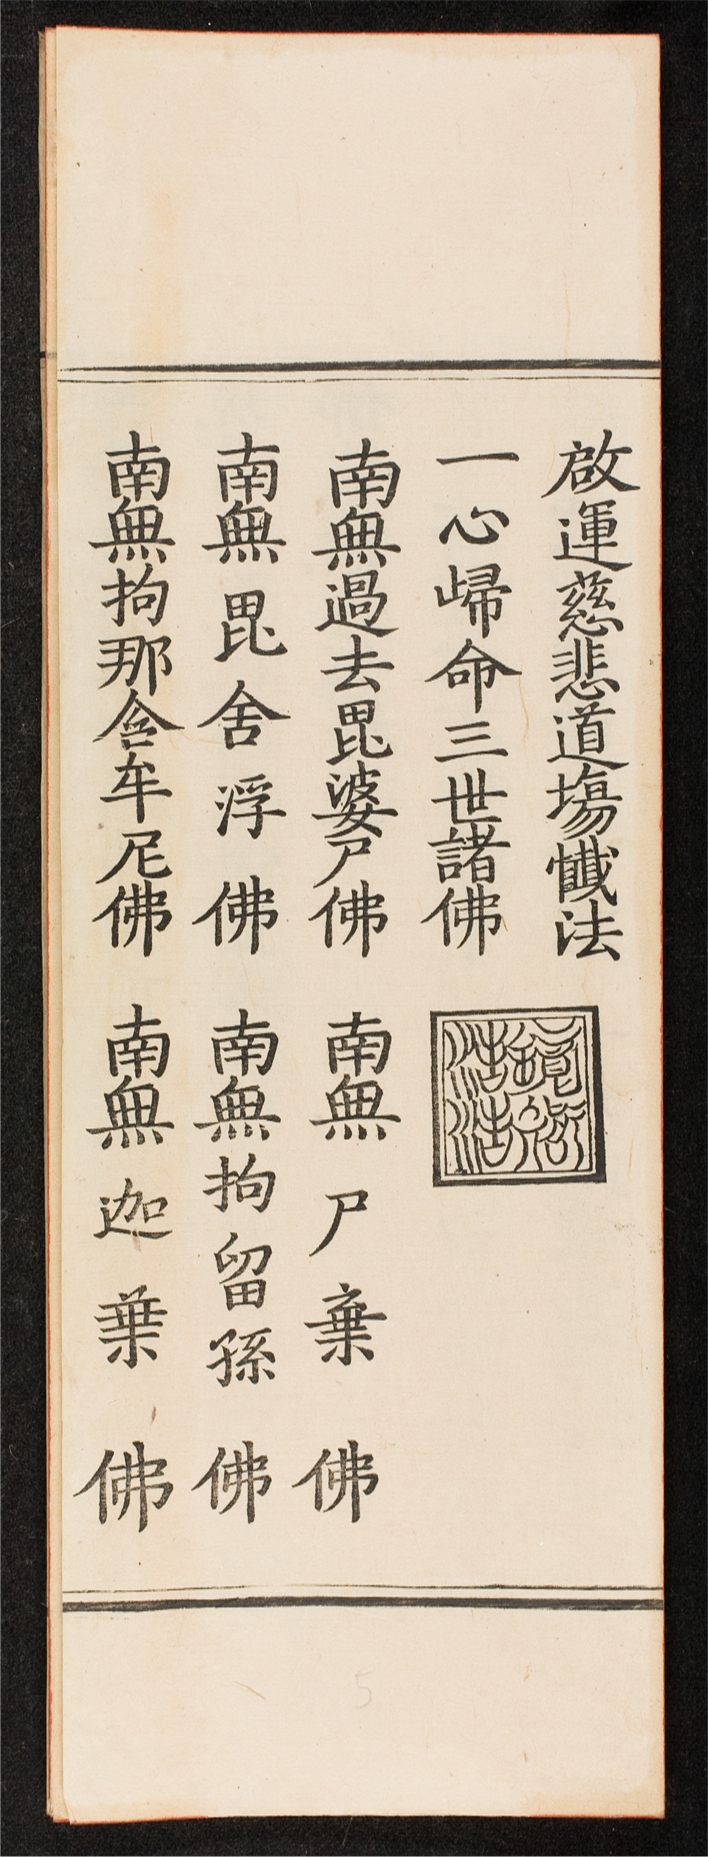 啟運慈悲道塲懴法
一心歸命三世諸佛
南無過去毘婆尸佛 南無尸棄佛
南無毘舍浮佛 南無拘留孫佛
南無拘那含牟尼佛 南無迦葉佛
5